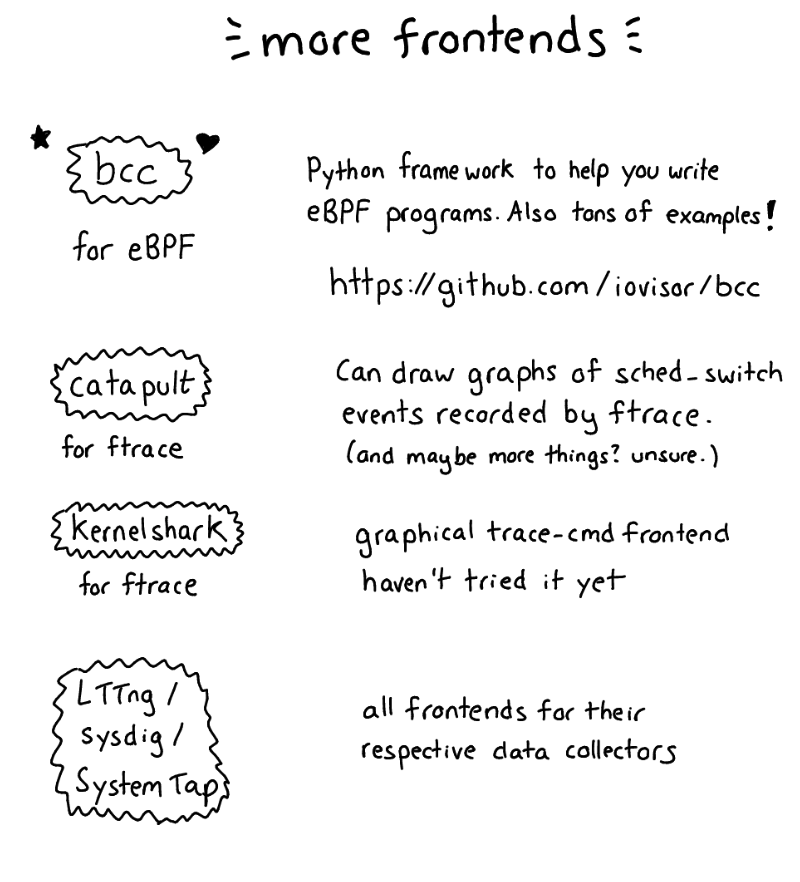 more frontends
bcc
for eBPF
Python framework to help you write
eBPF programs. Also tons of examples!
https://github.com/iovisor/bcc
catapult
for ftrace
Can draw graphs of sched_switch
events recorded by ftrace.
(and maybe more things? unsure.)
Kernelshark
for ftrace
graphical trace-cmd frontend
haven't tried it yet
LTTng /
sysdig /
SystemTap
all frontends for their
respective data collectors